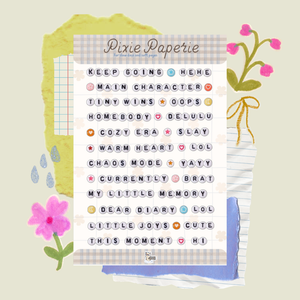 Pixie Paperie
KEEP GOING HEHE
MAIN CHARACTER
TINY WINS OOPS
HOMEBODY DELULU
COZY ERA SLAY
WARM HEART LOL
CHAOS MODE YAYY
CURRENTLY BRAT
MY LITTLE MEMORY
DEAR DIARY LOL
LITTLE JOYS CUTE
THIS MOMENT HI